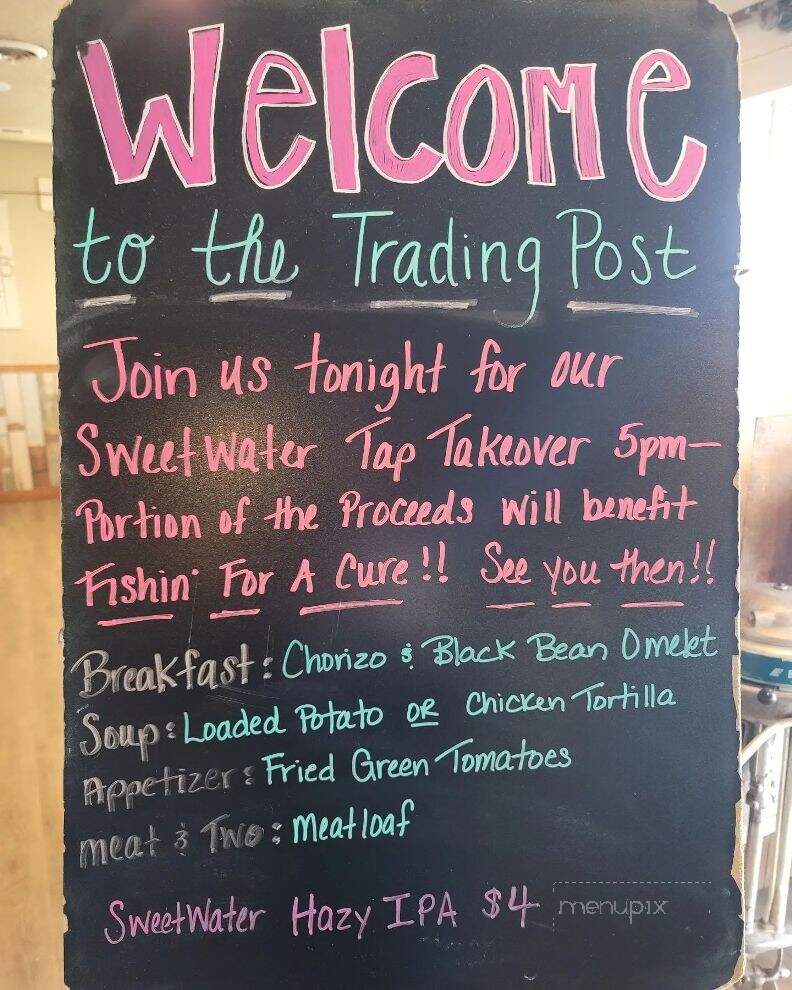 Welcome
to the Trading Post
Join us tonight for our
SweetWater Tap Takeover 5pm—
Portion of the Proceeds will benefit
Fishin' For A Cure!! See you then!!
Breakfast: Chorizo & Black Bean Omelet
Soup: Loaded Potato OR Chicken Tortilla
Appetizer: Fried Green Tomatoes
meat & Two: Meatloaf
SweetWater Hazy IPA $4
menupix